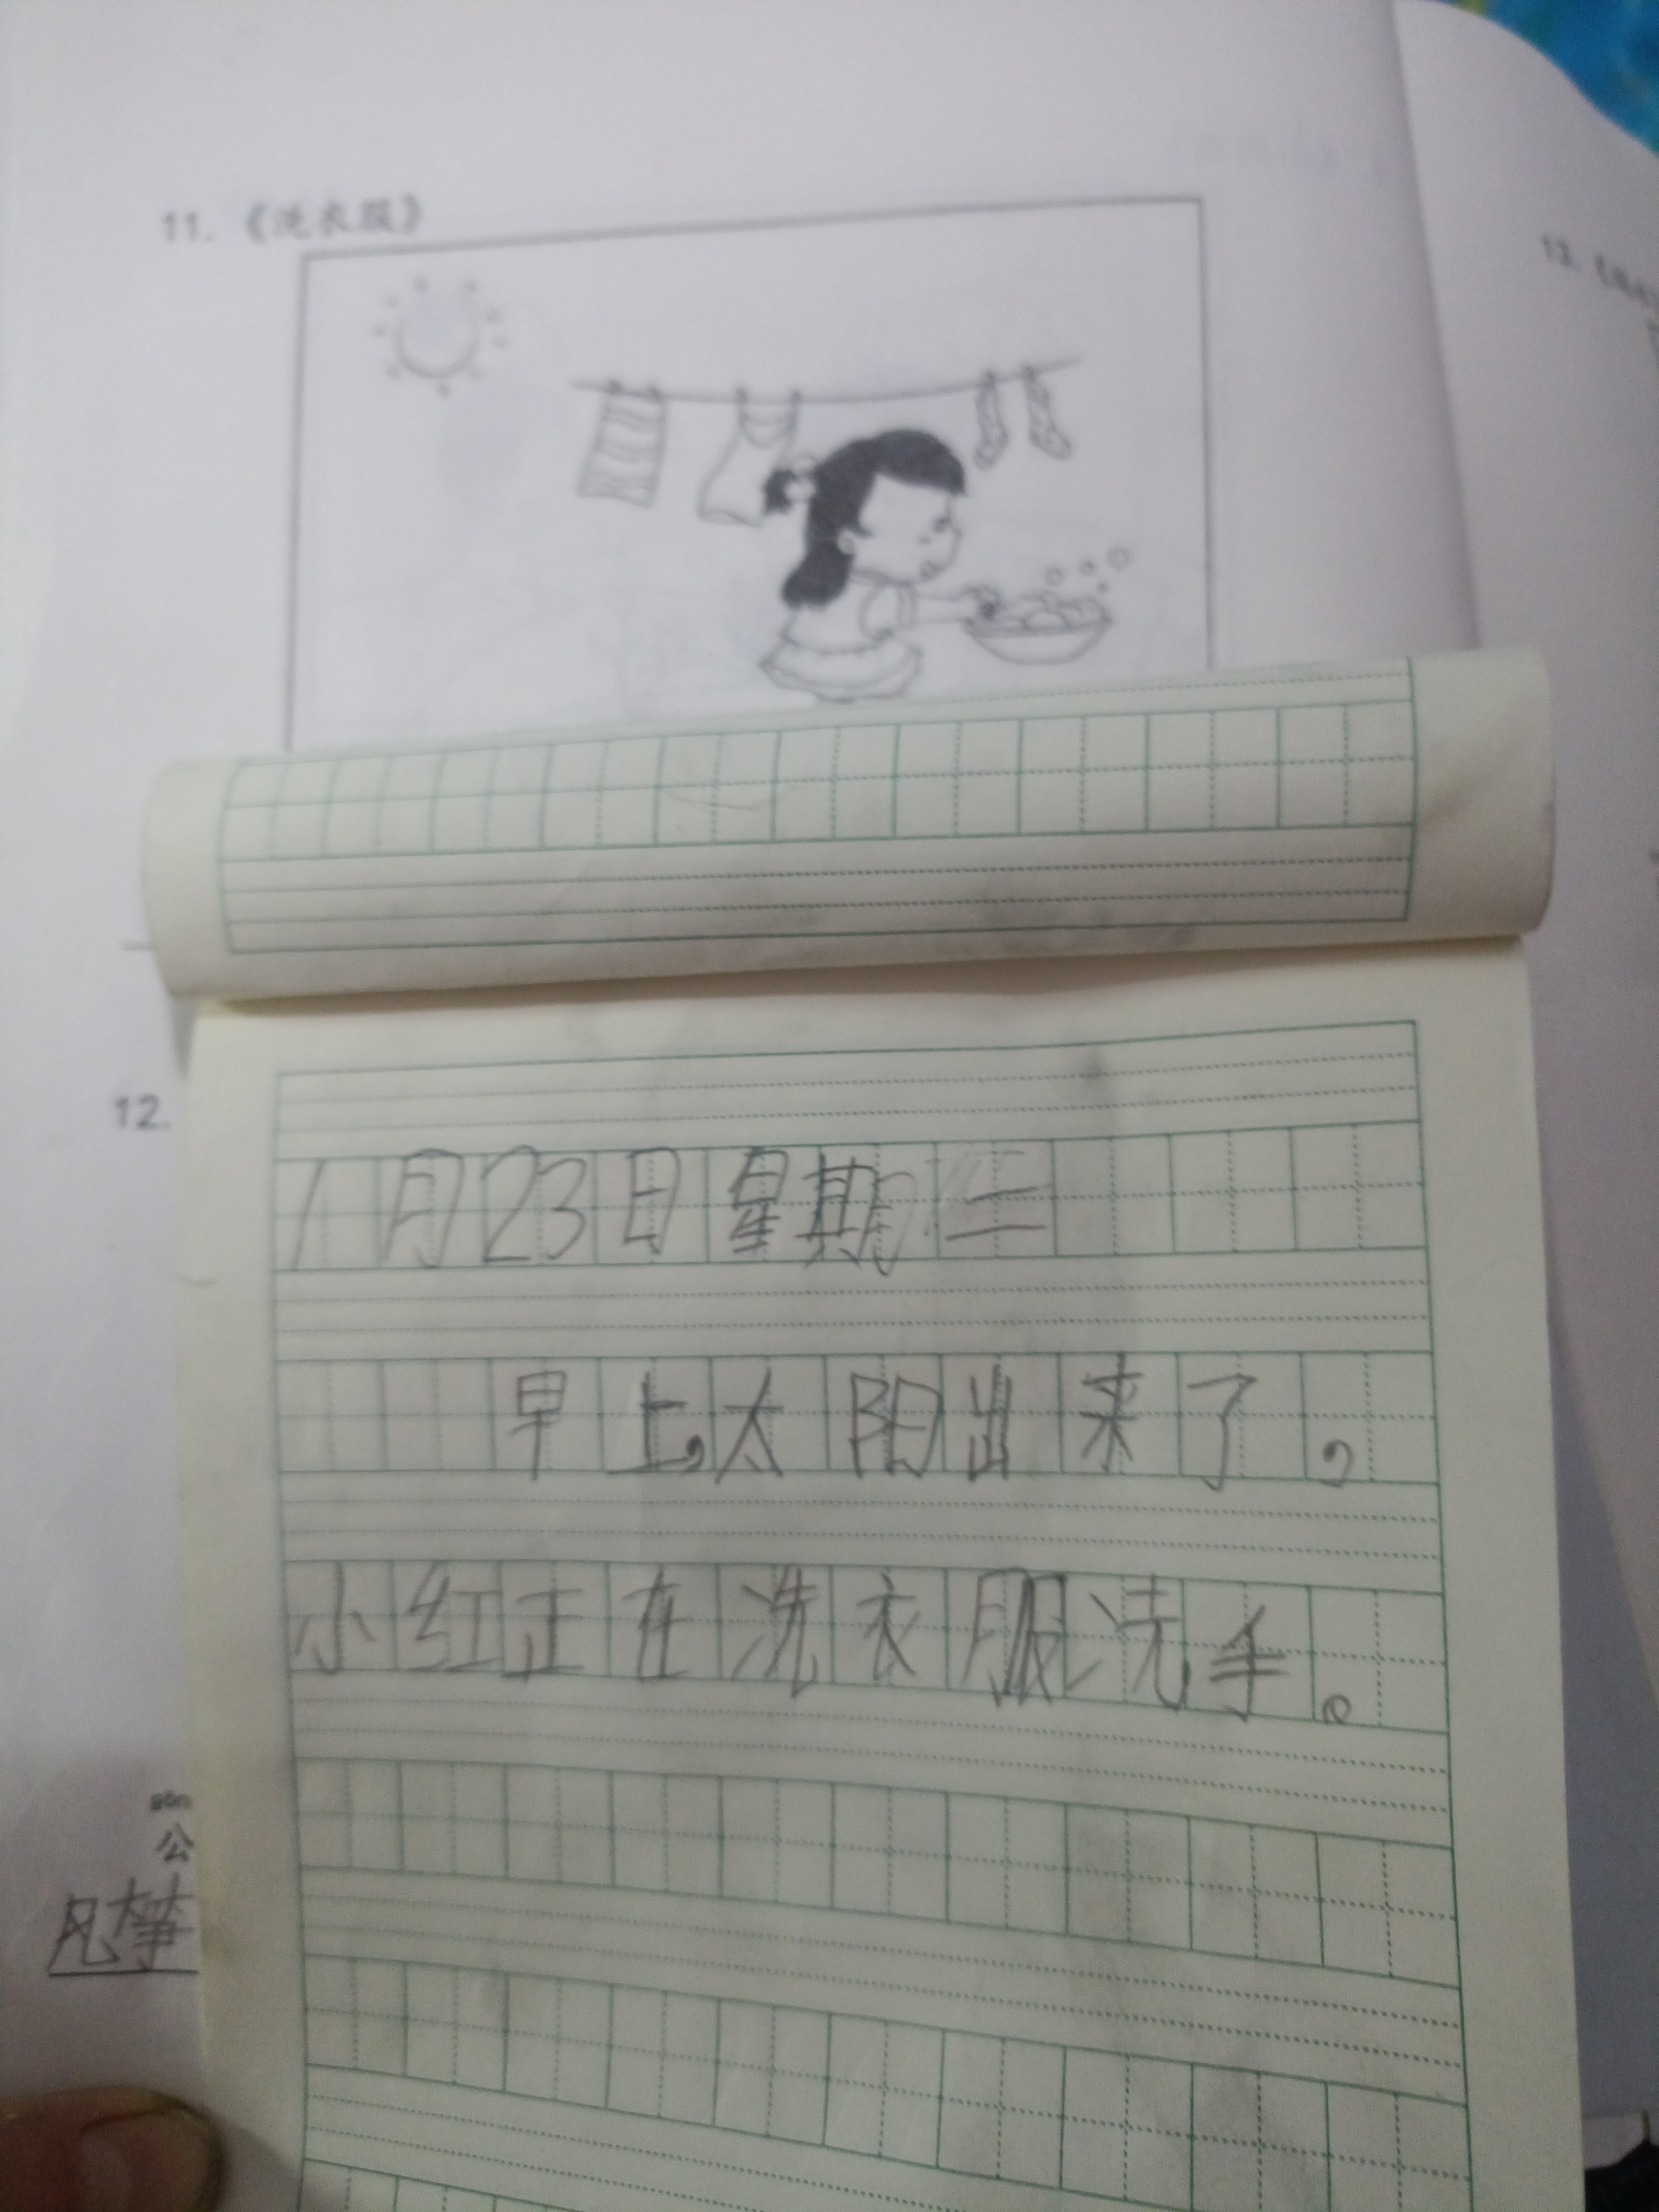 11.《洗衣服》
12.
1月23日星期二
早上,太阳出来了,
小红正在洗衣服洗手。
gōn
公
风筝